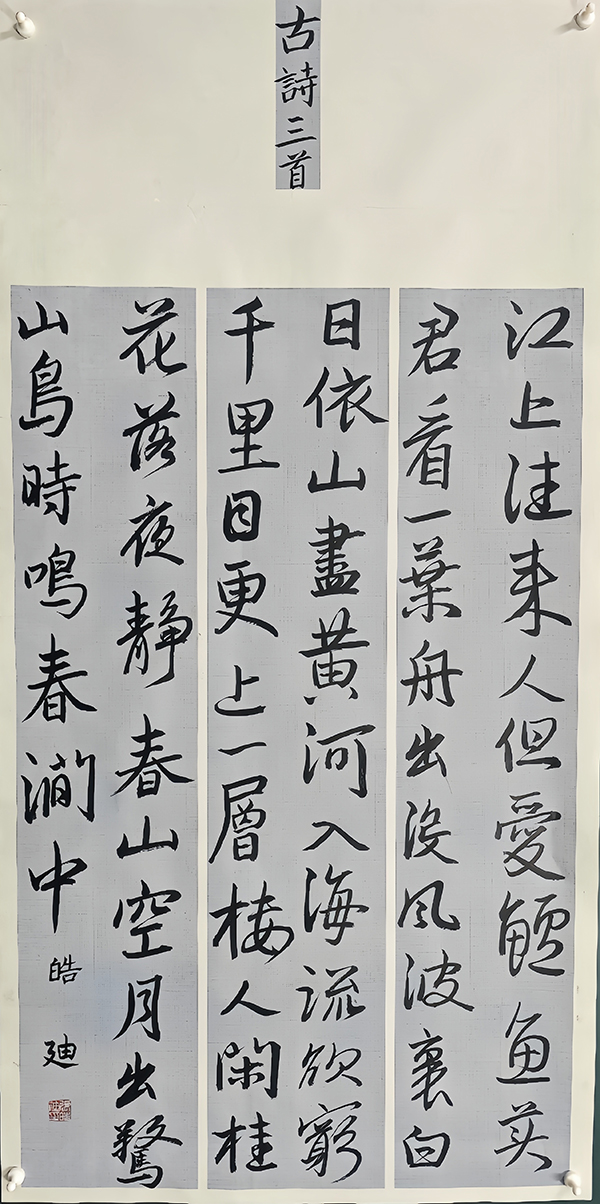 古詩三首
江上往来人但愛鱸魚美
君看一葉舟出没风波裏白
日依山盡黄河入海流欲窮
千里目更上一層楼人閑桂
花落夜静春山空月出驚
山鳥時鳴春澗中
皓廸